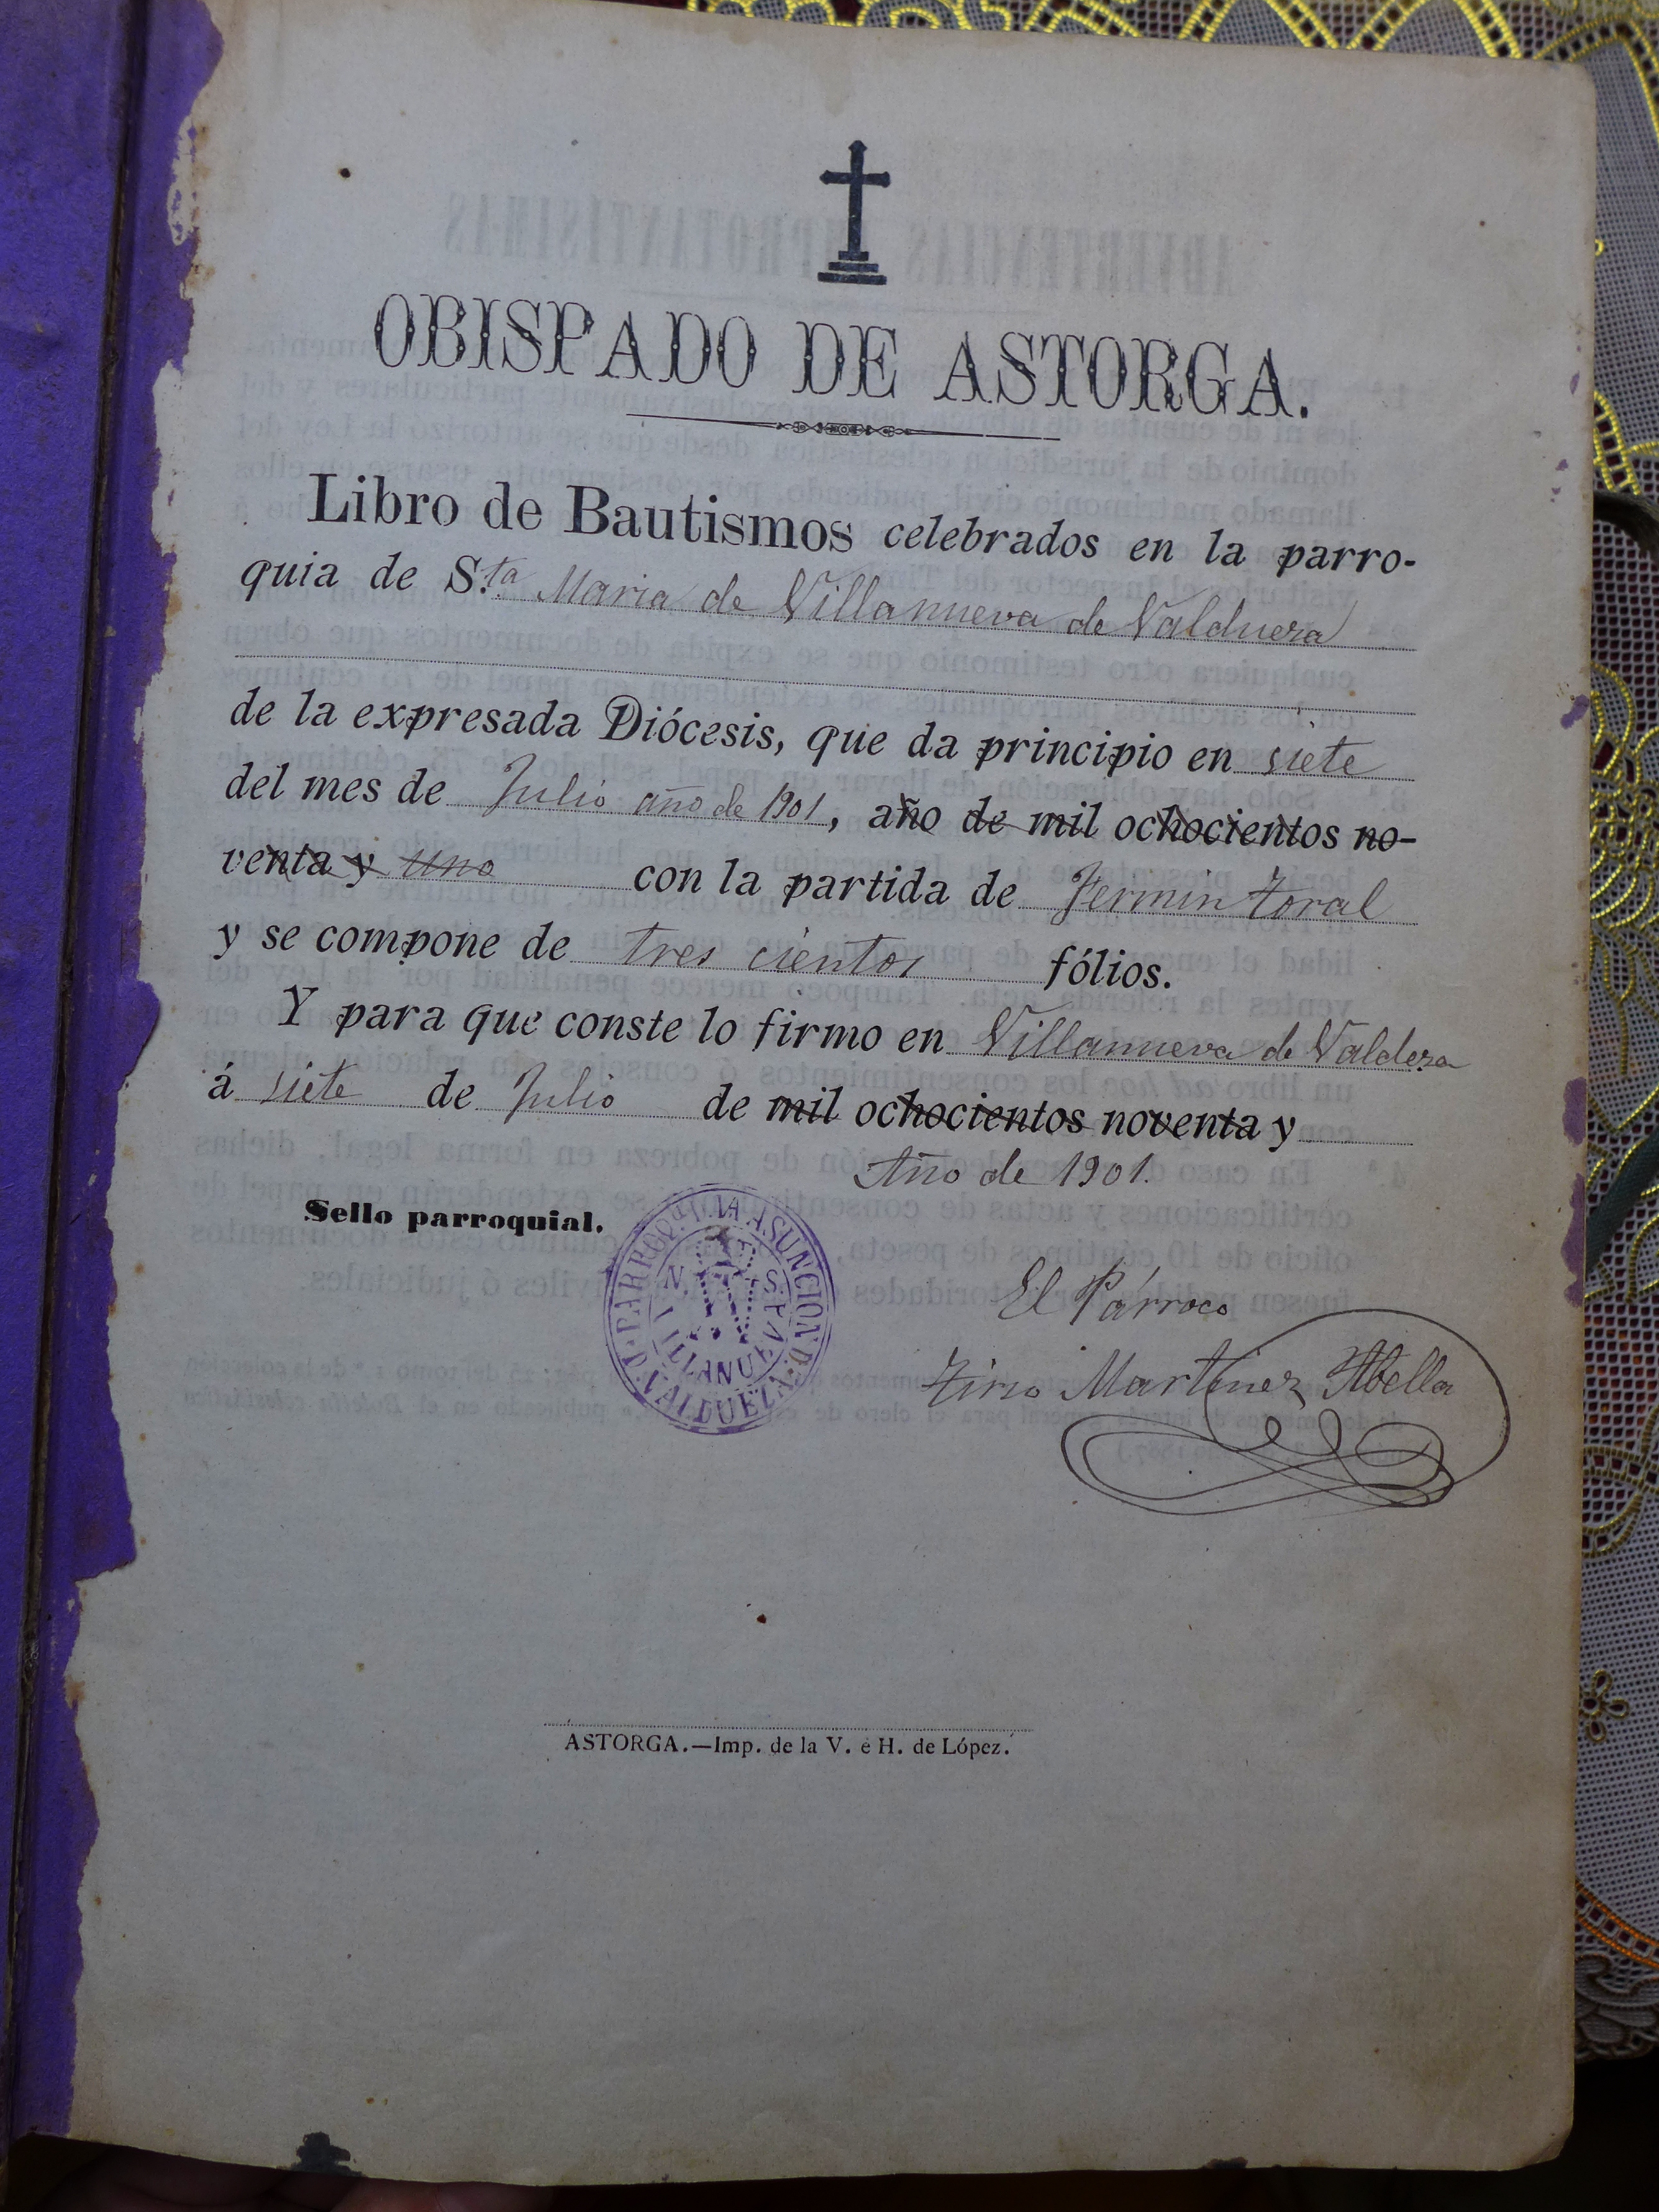 OBISPADO DE ASTORGA.
Libro de Bautismos celebrados en la parro-
quia de S.ta Maria de Villanueva de Valduera
de la expresada Diócesis, que da principio en siete
del mes de Julio año de 1901, año de mil ochocientos no-
venta y uno con la partida de Fermin Toral
y se compone de tres cientos fólios.
Y para que conste lo firmo en Villanueva de Valdera
á siete de Julio de mil ochocientos noventa y
Año de 1901.
Sello parroquial.
PARROQ. LA ASUNCION D.
N. S.
VILLANUEVA
VALDUEZA
El Párroco
Martinez Abella
ASTORGA.—Imp. de la V. é H. de López.